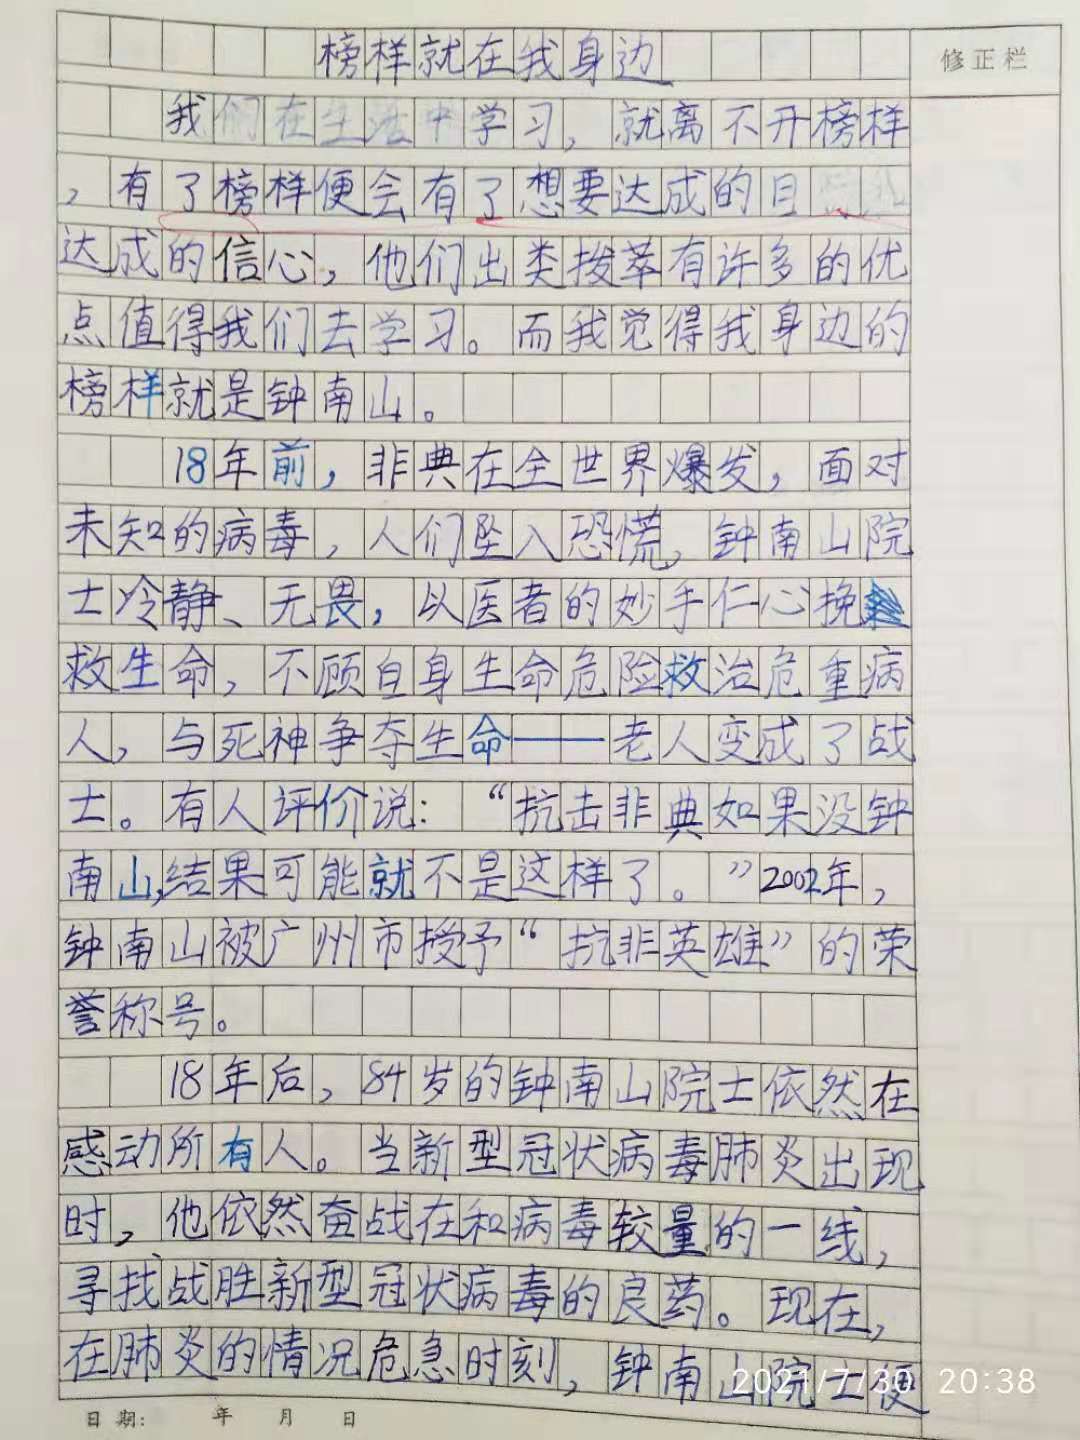 榜样就在我身边
修正栏
我们在生活中学习，就离不开榜样
，有了榜样便会有了想要达成的目
达成的信心，他们出类拨萃有许多的优
点值得我们去学习。而我觉得我身边的
榜样就是钟南山。
18年前，非典在全世界爆发，面对
未知的病毒，人们坠入恐慌，钟南山院
士冷静、无畏，以医者的妙手仁心挽
救生命，不顾自身生命危险救治危重病
人，与死神争夺生命——老人变成了战
士。有人评价说：“抗击非典如果没钟
南山，结果可能就不是这样了。”2002年，
钟南山被广州市授予“抗非英雄”的荣
誉称号。
18年后，84岁的钟南山院士依然在
感动所有人。当新型冠状病毒肺炎出现
时，他依然奋战在和病毒较量的一线，
寻找战胜新型冠状病毒的良药。现在，
在肺炎的情况危急时刻，钟南山院士便
2021/7/30 20:38
日期： 年 月 日